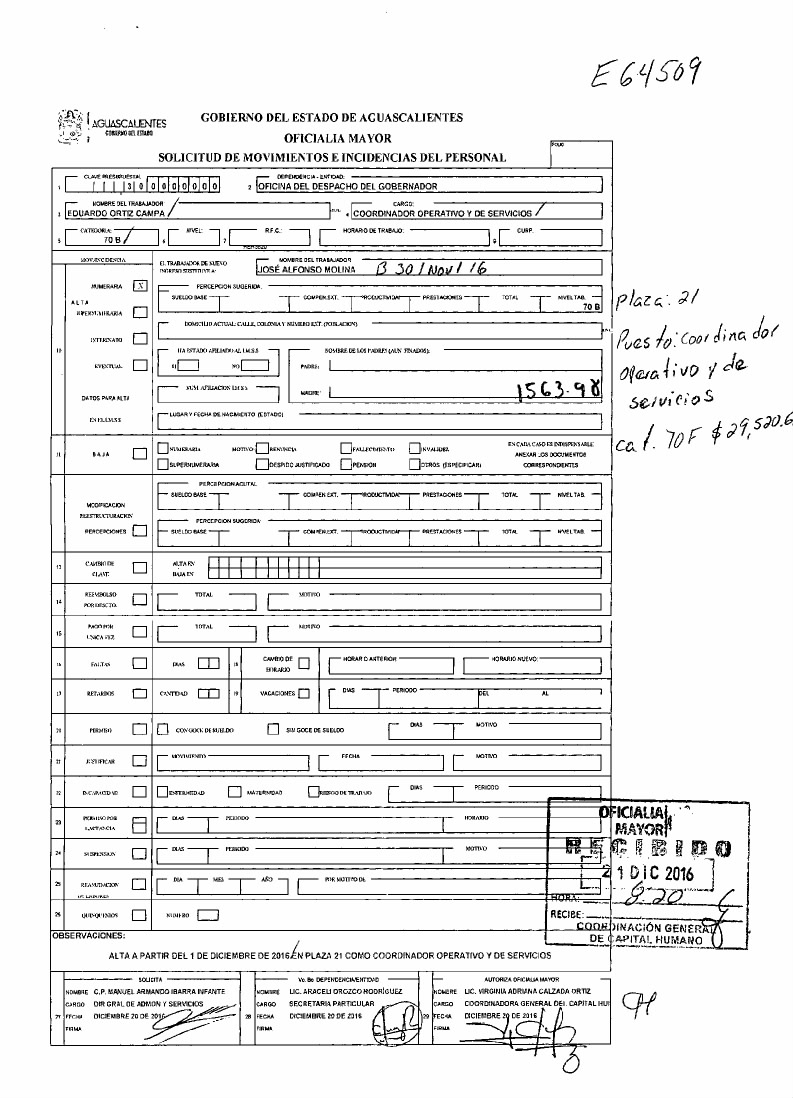 E64509
AGUASCALIENTES
GOBIERNO DEL ESTADO
GOBIERNO DEL ESTADO DE AGUASCALIENTES
OFICIALIA MAYOR
SOLICITUD DE MOVIMIENTOS E INCIDENCIAS DEL PERSONAL
FOLIO
CLAVE PRESUPUESTAL DEPENDENCIA - ENTIDAD:
1 3 0 0 0 0 0 0 0 0 2 OFICINA DEL DESPACHO DEL GOBERNADOR
NOMBRE DEL TRABAJADOR CARGO:
3 EDUARDO ORTIZ CAMPA 4 COORDINADOR OPERATIVO Y DE SERVICIOS
CATEGORIA: NIVEL: R.F.C.: HORARIO DE TRABAJO: CURP.
5 70 B 6 7 9
MOV/INCIDENCIA EL TRABAJADOR DE NUEVO INGRESO SUSTITUYE A: NOMBRE DEL TRABAJADOR
JOSÉ ALFONSO MOLINA B 30/Nov/16
NUMERARIA X PERCEPCION SUGERIDA:
ALTA SUELDO BASE COMPEN.EXT. PRODUCTIVIDAD PRESTACIONES TOTAL NIVEL TAB.
70 B
Plaza: 21
SUPERNUMERARIA DOMICILIO ACTUAL: CALLE, COLONIA Y NUMERO EXT. (POBLACION)
Puesto: Coordinador
operativo y de
servicios
cat. 70F $29,520.6
10 INTERINATO HA ESTADO AFILIADO AL I.M.S.S NOMBRE DE LOS PADRES (AUN FINADOS):
EVENTUAL SI NO PADRE:
DATOS PARA ALTA NUM. AFILIACION I.M.S.S. MADRE: 1563-98
EN EL I.M.S.S LUGAR Y FECHA DE NACIMIENTO (ESTADO)
11 BAJA NUMERARIA MOTIVO: RENUNCIA FALLECIMIENTO INVALIDEZ EN CADA CASO ES INDISPENSABLE
ANEXAR LOS DOCUMENTOS
SUPERNUMERARIA DESPIDO JUSTIFICADO PENSIÓN OTROS (ESPECIFICAR) CORRESPONDIENTES
PERCEPCION ACUTAL:
MODIFICACION SUELDO BASE COMPEN.EXT. PRODUCTIVIDAD PRESTACIONES TOTAL NIVEL TAB.
REESTRUCTURACION
PERCEPCION SUGERIDA:
PERCEPCIONES SUELDO BASE COMPEN.EXT. PRODUCTIVIDAD PRESTACIONES TOTAL NIVEL TAB.
13 CAMBIO DE ALTA EN
CLAVE BAJA EN
14 REEMBOLSO TOTAL MOTIVO:
POR DESCTO.
15 PAGO POR TOTAL MOTIVO:
UNICA VEZ
16 FALTAS DIAS 18 CAMBIO DE HORARIO HORARIO ANTERIOR HORARIO NUEVO:
17 RETARDOS CANTIDAD 19 VACACIONES DIAS PERIODO DEL AL
20 PERMISO CON GOCE DE SUELDO SIN GOCE DE SUELDO DIAS MOTIVO
21 JUSTIFICAR MOVIMIENTO FECHA MOTIVO
22 INCAPACIDAD ENFERMEDAD MATERNIDAD RIESGO DE TRABAJO DIAS PERIODO
23 PERMISO POR DIAS PERIODO HORARIO
LACTANCIA
24 SUSPENSION DIAS PERIODO MOTIVO
25 REANUDACION DIA MES AÑO POR MOTIVO DE
DE LABORES
26 QUINQUENIOS NUMERO
OFICIALIA
MAYOR
RECIBIDO
21 DIC 2016
HORA: 8:20
RECIBE:
COORDINACIÓN GENERAL
DE CAPITAL HUMANO
OBSERVACIONES:
ALTA A PARTIR DEL 1 DE DICIEMBRE DE 2016 EN PLAZA 21 COMO COORDINADOR OPERATIVO Y DE SERVICIOS
SOLICITA Vo. Bo DEPENDENCIA/ENTIDAD AUTORIZA OFICIALIA MAYOR
NOMBRE C.P. MANUEL ARMANDO IBARRA INFANTE NOMBRE LIC. ARACELI OROZCO RODRÍGUEZ NOMBRE LIC. VIRGINIA ADRIANA CALZADA ORTIZ
CARGO DIR GRAL DE ADMON Y SERVICIOS CARGO SECRETARIA PARTICULAR CARGO COORDINADORA GENERAL DEL CAPITAL HU
27 FECHA DICIEMBRE 20 DE 2016 28 FECHA DICIEMBRE 20 DE 2016 29 FECHA DICIEMBRE 20 DE 2016
FIRMA FIRMA FIRMA